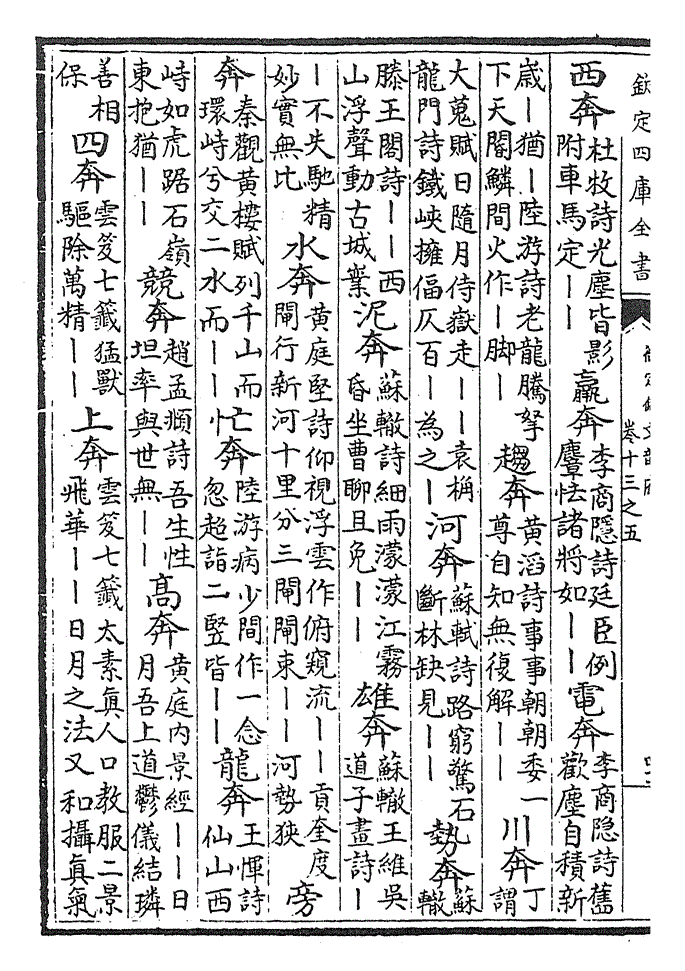 欽定四庫全書
卷十三之五
西奔杜牧詩光塵皆影附車馬定｜｜羸奔李商隱詩廷臣例麞怯諸將如｜｜電奔李商隱詩舊歡塵自積新
歲｜猶｜陸游詩老龍騰拏下天闔鱗間火作｜脚｜趨奔黃滔詩事事朝朝委一尊自知無復解｜｜川奔丁謂
大蒐賦日隨月侍嶽走｜｜袁桷龍門詩鐵峽擁偪仄百｜為之｜河奔蘇軾詩路窮驚石斷林缺見｜｜勢奔蘇轍
滕王閣詩｜｜西山浮聲動古城業泥奔蘇轍詩細雨濛濛江霧昏坐曹聊且免｜｜雄奔蘇轍王維吳道子畫詩｜
｜不失馳精妙實無比水奔黃庭堅詩仰視浮雲作俯窺流｜｜貢奎度閘行新河十里分三閘閘束｜｜河勢狹旁
奔秦觀黃樓賦列千山而環峙兮交二水而｜｜忙奔陸游病少間作一念忽超詣二竪皆｜｜龍奔王惲詩仙山西
峙如虎踞石嶺東抱猶｜｜競奔趙孟頫詩吾生性坦率與世無｜｜高奔黃庭內景經｜｜日月吾上道鬱儀結璘
善相保四奔雲笈七籤猛獸驅除萬精｜｜上奔雲笈七籤太素眞人口教服二景飛華｜｜日月之法又和攝眞氣